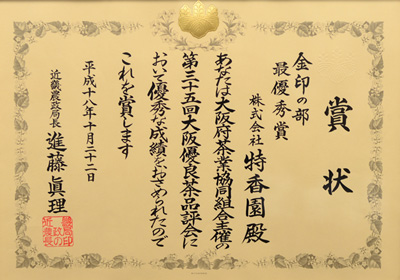 賞状
金印の部
最優秀賞
株式会社 特香園殿
あなたは大阪府茶業協同組合主催の
第三十五回大阪優良茶品評会に
おいて優秀な成績をおさめられたので
これを賞します
平成十八年十月二十二日
近畿農政局長 進藤眞理